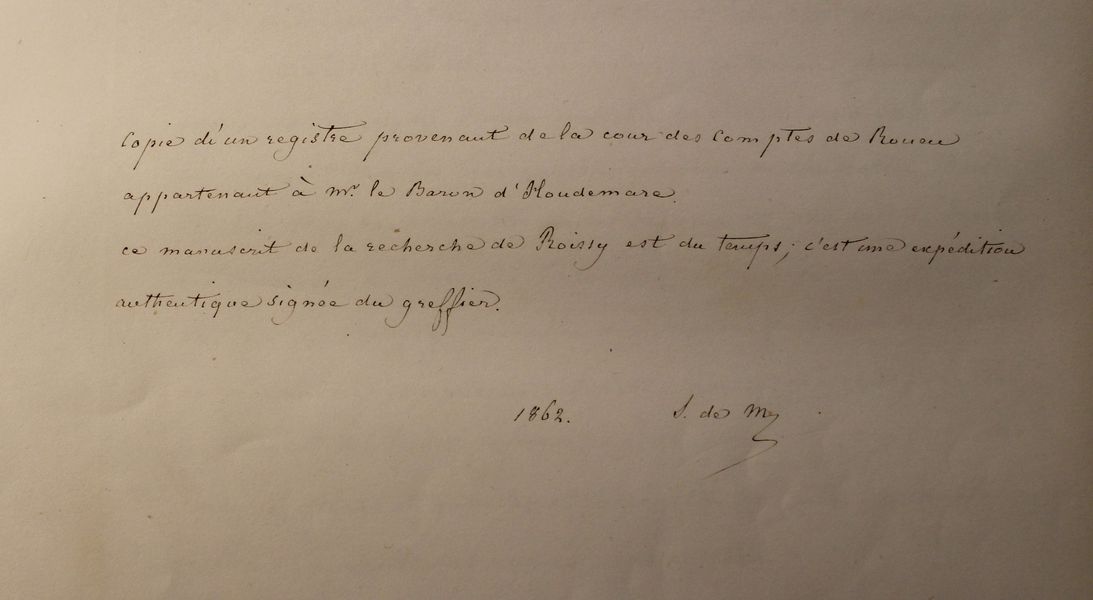 Copie d'un registre provenant de la cour des Comptes de Rouen
appartenant à Mr. le Baron d'Houdemare.
ce manuscrit de la recherche de Roissy est du temps; c'est une expédition
authentique signée du greffier.
1862. S. de M